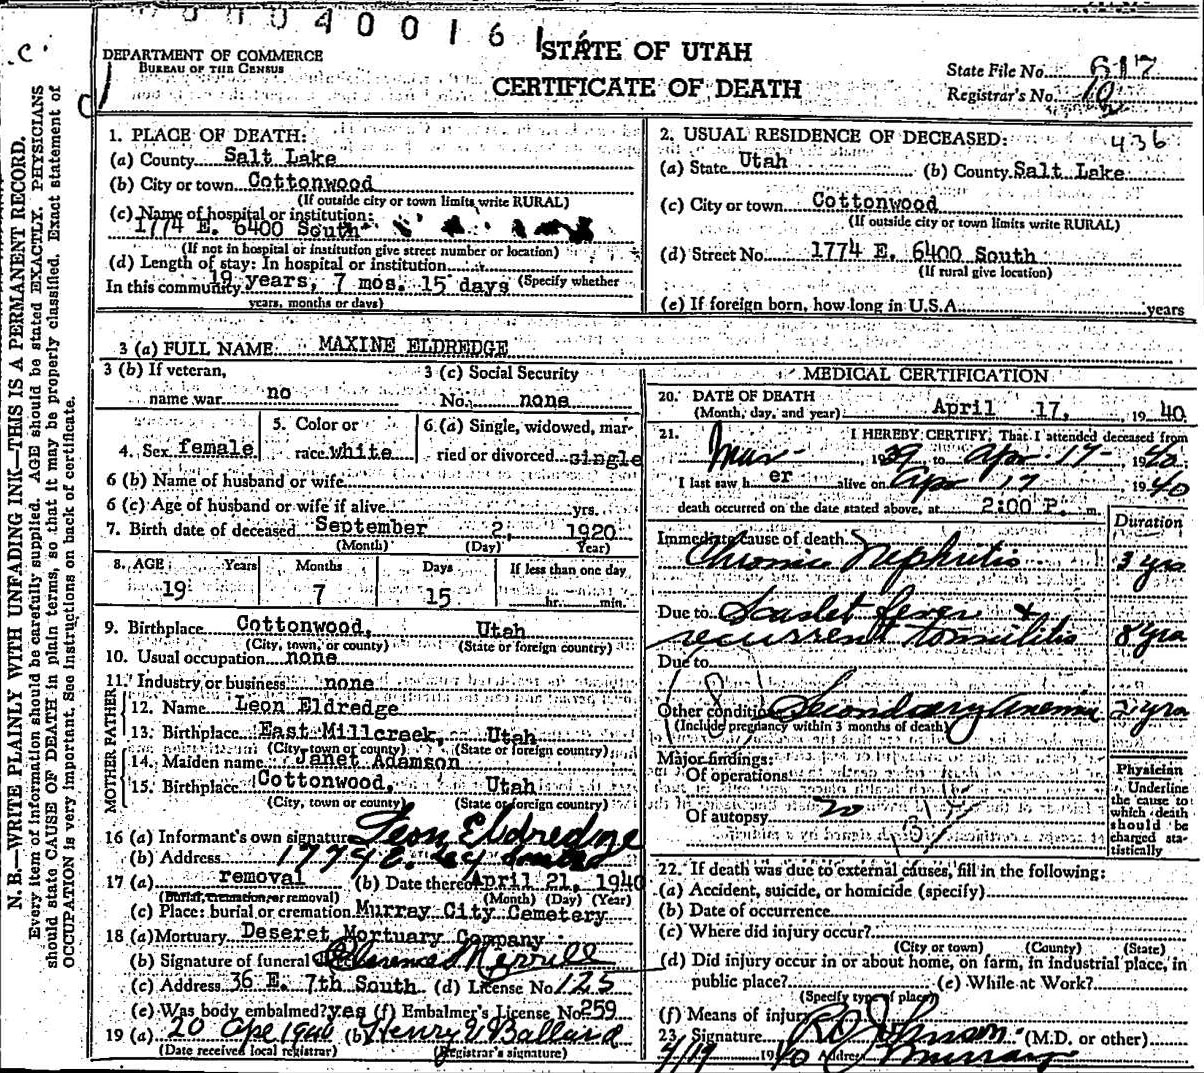 0 0 0 4 0 0 1 6 1
DEPARTMENT OF COMMERCE
BUREAU OF THE CENSUS
STATE OF UTAH
CERTIFICATE OF DEATH
State File No. 617
Registrar's No.
C.
N. B.—WRITE PLAINLY WITH UNFADING INK—THIS IS A PERMANENT RECORD.
Every item of information should be carefully supplied. AGE should be stated EXACTLY. PHYSICIANS
should state CAUSE OF DEATH in plain terms, so that it may be properly classified. Exact statement of
OCCUPATION is very important. See Instructions on back of certificate.
1. PLACE OF DEATH:
(a) County Salt Lake
(b) City or town Cottonwood
(If outside city or town limits write RURAL)
(c) Name of hospital or institution:
1774 E. 6400 South
(If not in hospital or institution give street number or location)
(d) Length of stay: In hospital or institution
In this community 19 years, 7 mos. 15 days (Specify whether
years, months or days)
2. USUAL RESIDENCE OF DECEASED: 436
(a) State Utah (b) County Salt Lake
(c) City or town Cottonwood
(If outside city or town limits write RURAL)
(d) Street No. 1774 E. 6400 South
(If rural give location)
(e) If foreign born, how long in U.S.A. years
3 (a) FULL NAME MAXINE ELDREDGE
3 (b) If veteran, name war no
3 (c) Social Security No. none
4. Sex female
5. Color or race white
6. (a) Single, widowed, married or divorced single
6 (b) Name of husband or wife
6 (c) Age of husband or wife if alive yrs.
7. Birth date of deceased September 2, 1920
(Month) (Day) Year)
8. AGE Years Months Days If less than one day
19 7 15 hr. min.
9. Birthplace Cottonwood, Utah
(City, town, or county) (State or foreign country)
10. Usual occupation none
11. Industry or business none
FATHER
12. Name Leon Eldredge
13. Birthplace East Millcreek, Utah
(City, town or county) (State or foreign country)
MOTHER
14. Maiden name Janet Adamson
15. Birthplace Cottonwood, Utah
(City, town or county) (State or foreign country)
16 (a) Informant's own signature Leon Eldredge
(b) Address 1774 E. 64 South
17 (a) removal (b) Date thereof April 21, 1940
(Burial, cremation, or removal) (Month) (Day) (Year)
(c) Place: burial or cremation Murray City Cemetery
18 (a) Mortuary Deseret Mortuary Company
(b) Signature of funeral Clarence Merrill
(c) Address 36 E. 7th South (d) License No. 125
(e) Was body embalmed? yes (f) Embalmer's License No. 259
19 (a) 20 Apr 1940 (b) Henry W Ballard
(Date received local registrar) (Registrar's signature)
MEDICAL CERTIFICATION
20. DATE OF DEATH
(Month, day, and year) April 17, 1940
21. I HEREBY CERTIFY, That I attended deceased from
Mar 1939 to Apr 17 1940
I last saw h er alive on Apr 17 1940
death occurred on the date stated above, at 2:00 P. m.
Duration
Immediate cause of death
Chronic Nephritis 3 yrs
Due to Scarlet fever &
recurrent tonsilitis 8 yrs
Due to
Other conditions Secondary Anemia 2 yrs
(Include pregnancy within 3 months of death)
Major findings:
Of operations
Of autopsy no
131
Physician
Underline
the cause to
which death
should be
charged sta-
tistically
22. If death was due to external causes, fill in the following:
(a) Accident, suicide, or homicide (specify)
(b) Date of occurrence
(c) Where did injury occur?
(City or town) (County) (State)
(d) Did injury occur in or about home, on farm, in industrial place, in
public place? (e) While at Work?
(Specify type of place)
(f) Means of injury
23. Signature R O Johnson (M.D. or other)
4/19 1940 Address Murray